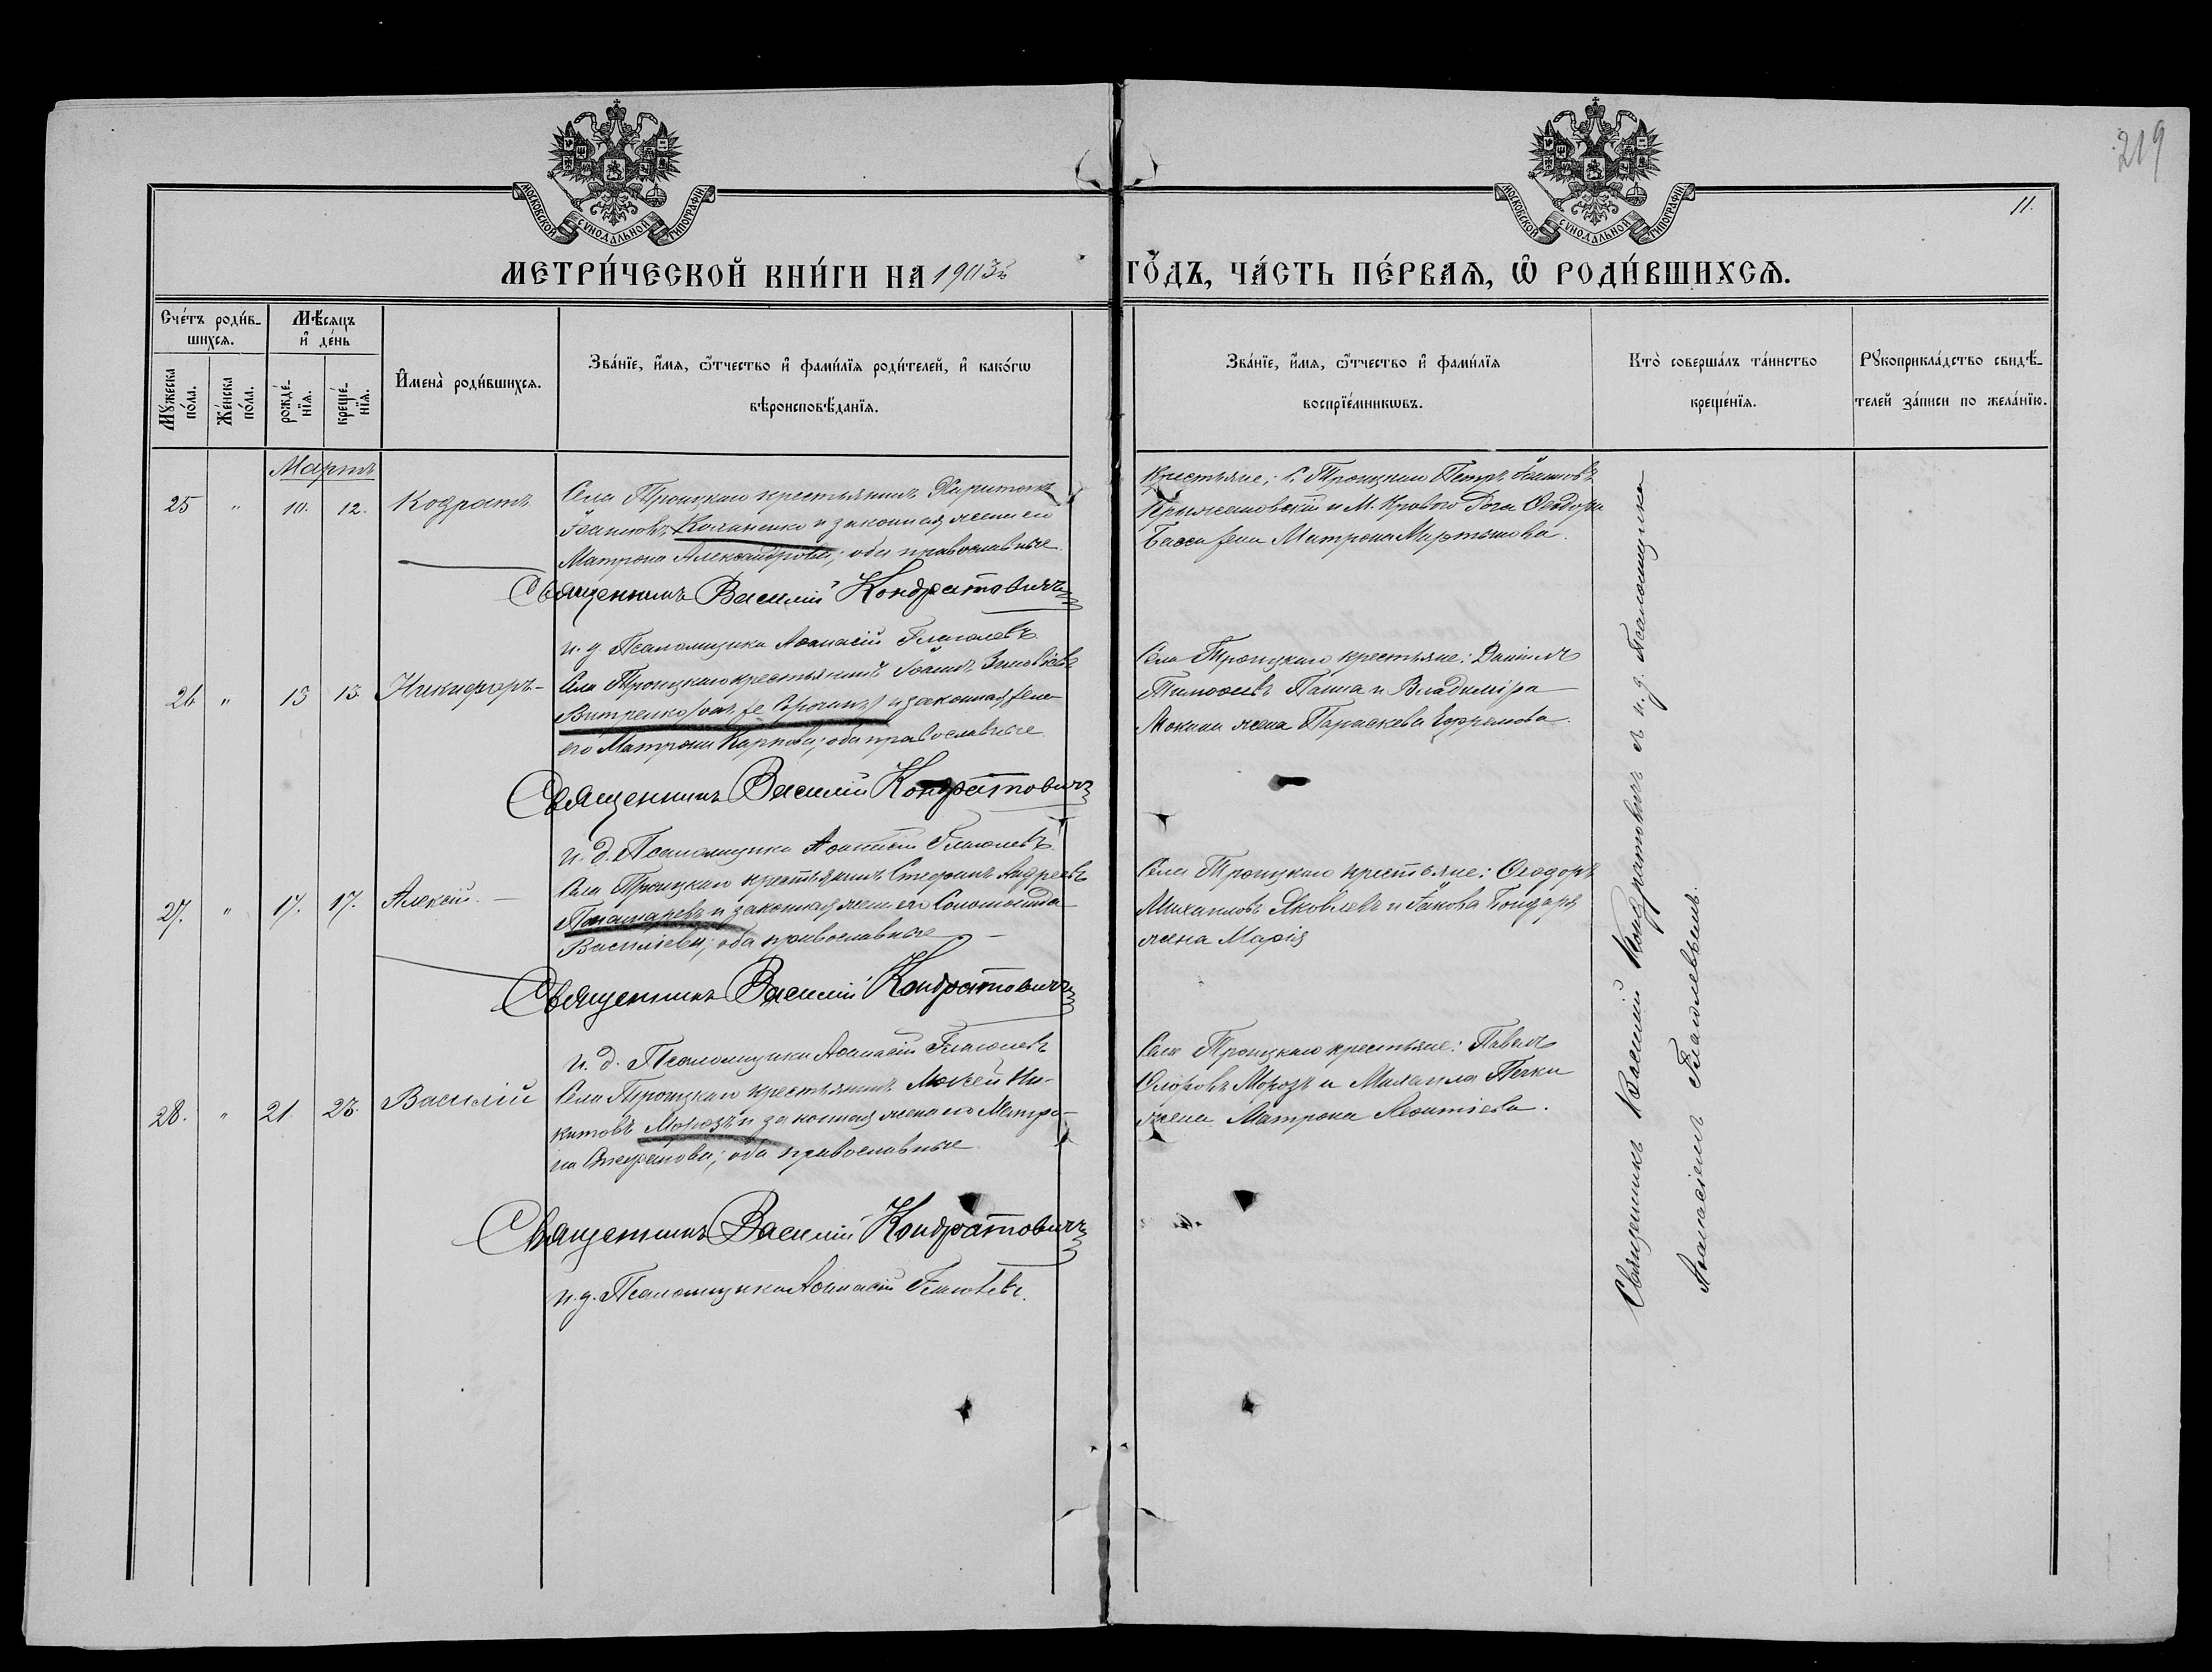 219
11.
МОСКОВСКОЙ СѴНОДАЛЬНОЙ ТИПОГРАФІИ
МОСКОВСКОЙ СѴНОДАЛЬНОЙ ТИПОГРАФІИ
МЕТРИ́ЧЕСКОЙ КНИ́ГИ НА 1903й ГО́ДЪ, ЧА́СТЬ ПЕ́РВАЯ, Ѡ РОДИ́ВШИХСЯ.
Сче́тъ роди́в-
шихся.
Мѣсяцъ
и де́нь
Мꙋжеска
по́ла.
Же́нска
по́ла.
рожде́-
нїя.
креще́-
нїя.
Имена̀ роди́вшихся.
Зва́нїе, и́мя, ѻ҆́тчество и фами́лїя роди́телей, и како́гѡ
вѣроисповѣ́данїя.
Зва́нїе, и́мя, ѻ҆́тчество и фами́лїя
воспрїе́мникѡвъ.
Кто̀ соверша́лъ та́инство
креще́нїя.
Рꙋкоприкла́дство свидѣ́-
телей за́писи по жела́нїю.
Мартъ
25 " 10. 12. Кодратъ
Села Троицкаго крестьянинъ Харитонъ
Іоанновъ и законная жена его
Матрона Александрова; оба православные.
Священникъ Василій Кондратовичъ
и. д. Псаломщика Аѳанасій Глаголевъ
Крестьяне: с. Троицкаго Петръ Іоанновъ
и М. Криваго Рога Ѳеодора
жена Матрона Мартынова.
26 " 13 13. Никифоръ
Села Троицкаго крестьянинъ Іоаннъ Зиновіевъ
Витренко (онъ же ) и законная жена
его Матрона Карпова; оба православные.
Священникъ Василій Кондратовичъ
и. д. Псаломщика Аѳанасій Глаголевъ
Села Троицкаго крестьяне: Даніилъ
Тимоѳеевъ Папка и Владиміра
Мокина жена Параскева Ефремова.
27. " 17. 17. Алексій
Села Троицкаго крестьянинъ Стефанъ Андреевъ
Пономаревъ и законная жена его Соломонида
Василіева; оба православные
Священникъ Василій Кондратовичъ
и. д. Псаломщика Аѳанасій Глаголевъ
Села Троицкаго крестьяне: Ѳеодоръ
Михаиловъ Яковлевъ и Іакова Бондаря
жена Марія
28. " 21. 23. Василій
Села Троицкаго крестьянинъ Мокей Ни-
китовъ Морозъ и законная жена его Матро-
на Стефанова; оба православные
Священникъ Василій Кондратовичъ
и. д. Псаломщика Аѳанасій Глаголевъ.
Села Троицкаго крестьяне: Павелъ
Морозъ и Михаила Печки
жена Матрона Леонтіева.
Священникъ Василій Кондратовичъ съ и. д. Псаломщика
Аѳанасіемъ Глаголевымъ.